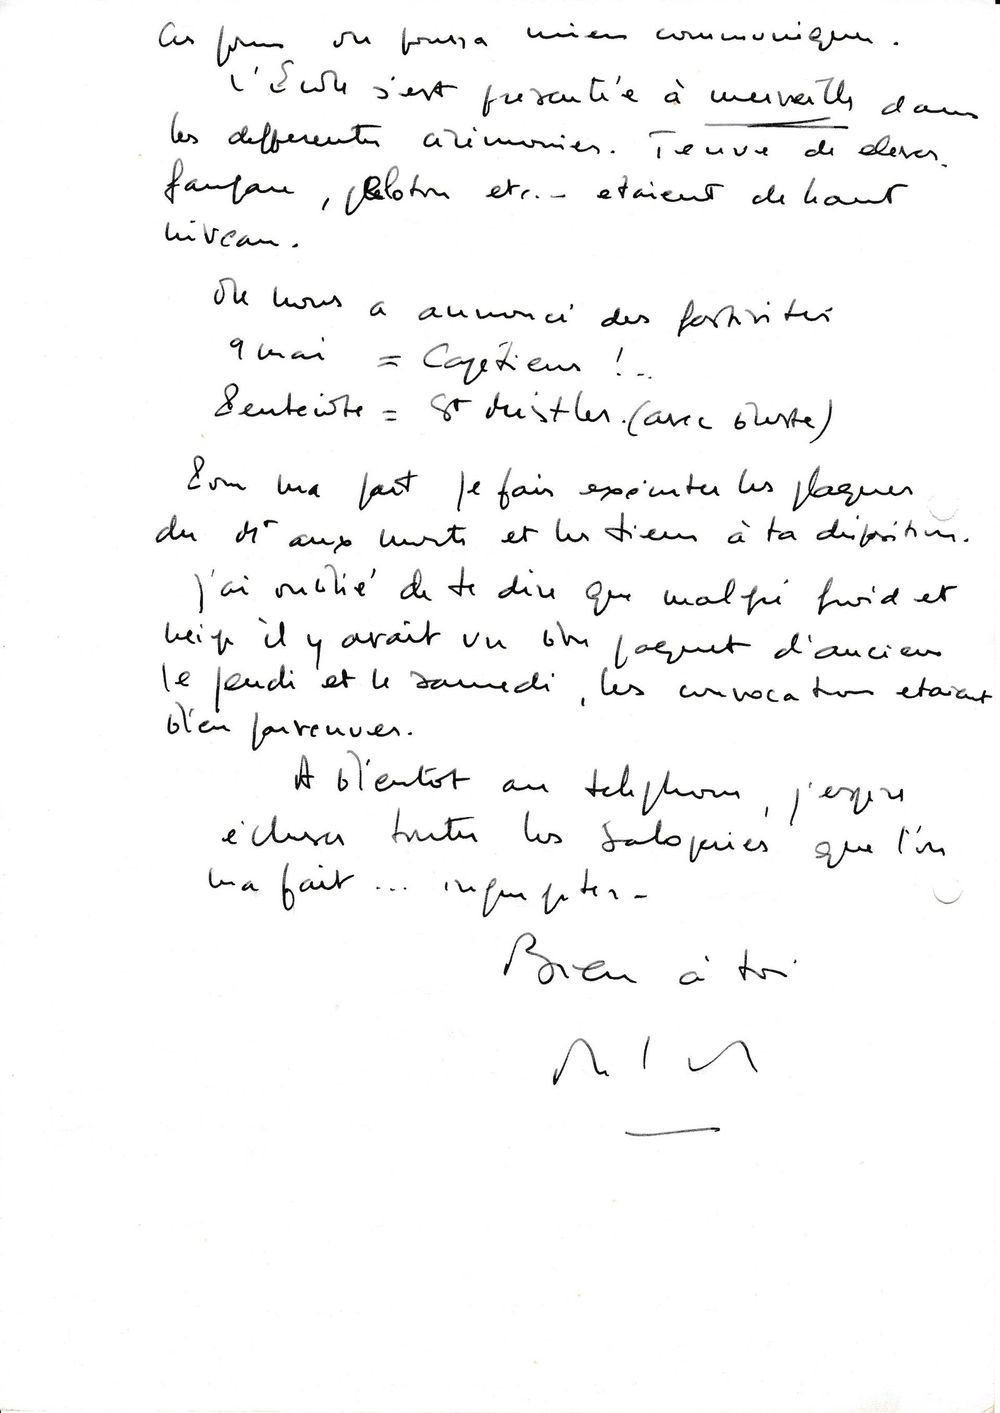 Ces jours on pourra mieux communiquer.
L'École s'est présentée à merveille dans
les differentes cérémonies. Tenue des eleves,
fanfare, peloton etc.. etaient de haut
niveau.
On nous a annoncé des festivités
9 mai = Capétiens !..
Pentecôte = St (avec
Pour ma part je fais exécuter les plaques
du Mt aux morts et les tiens à ta disposition.
J'ai oublié de te dire que malgré froid et
neige il y avait un bon paquet d'anciens
le jeudi et le samedi, les convocations etaient
bien parvenues.
A bientot au telephone, j'espère
écluser toutes les saloperies que l'on
m'a fait ... ingurgiter -
Bien à toi